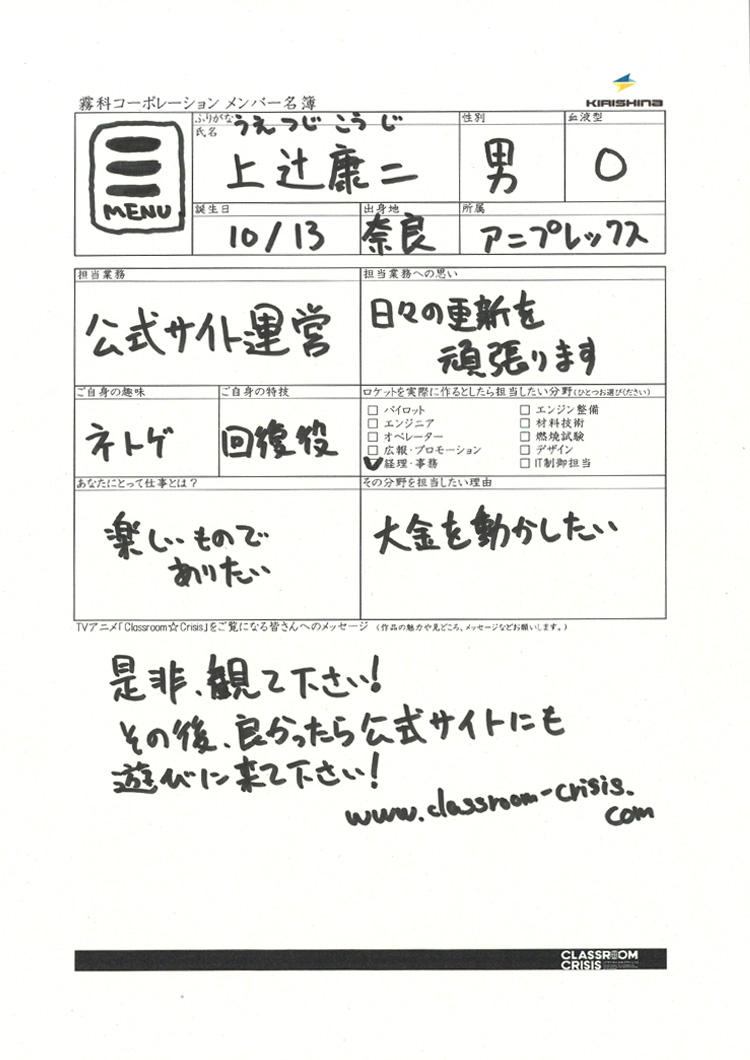 霧科コーポレーション メンバー名簿
KIRISHINA
MENU
ふりがな うえつじ こうじ
氏名
上辻康二
性別
男
血液型
O
誕生日
10/13
出身地
奈良
所属
アニプレックス
担当業務
公式サイト運営
担当業務への思い
日々の更新を
頑張ります
ご自身の趣味
ネトゲ
ご自身の特技
回復役
ロケットを実際に作るとしたら担当したい分野(ひとつお選びください)
パイロット
エンジニア
オペレーター
広報・プロモーション
経理・事務
エンジン整備
材料技術
燃焼試験
デザイン
IT制御担当
あなたにとって仕事とは?
楽しいもので
ありたい
その分野を担当したい理由
大金を動かしたい
TVアニメ「Classroom☆Crisis」をご覧になる皆さんへのメッセージ (作品の魅力や見どころ、メッセージなどお願いします。)
是非、観て下さい!
その後、良かったら公式サイトにも
遊びに来て下さい!
www.classroom-crisis.
com
CLASSROOM
CRISIS